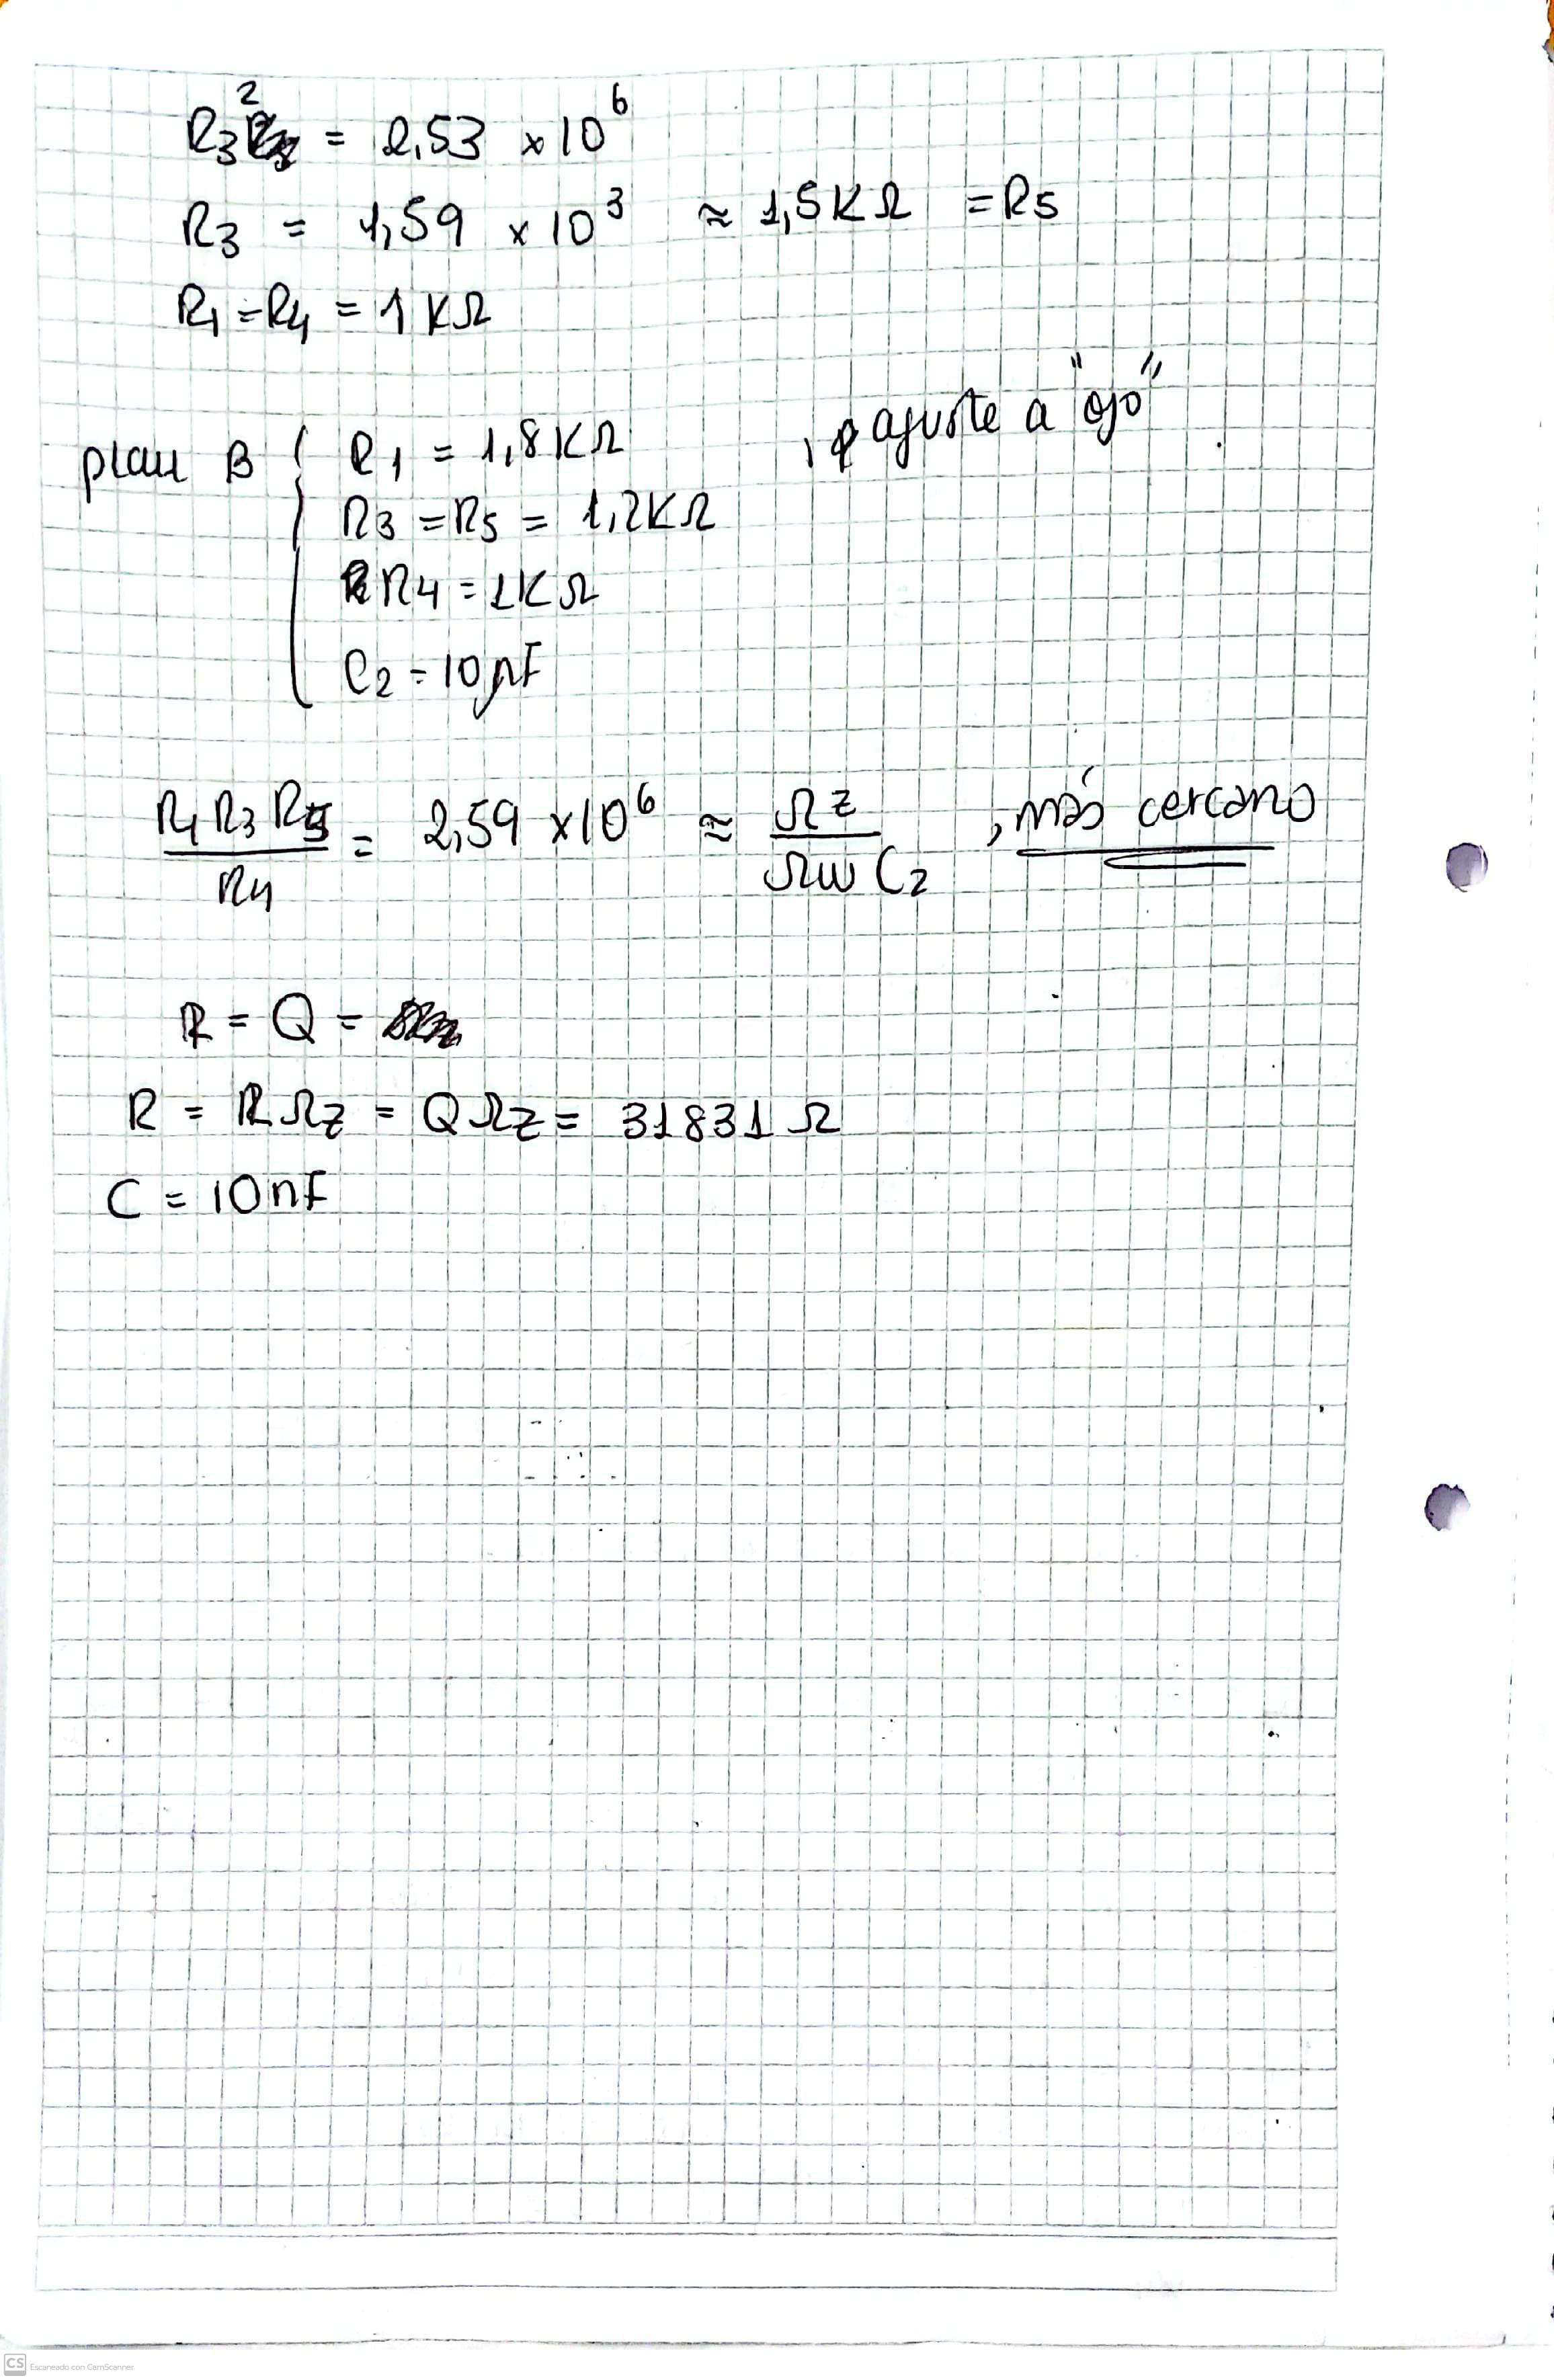 R3² = 2,53 x10⁶
R3 = 1,59 x 10³ ≈ 1,5KΩ = R5
R1 = R4 = 1 KΩ
plan B { R1 = 1,8KΩ , ajuste a "ojo"
R3 = R5 = 1,2KΩ
R4 = 1KΩ
C2 = 10nF
R1 R3 R5 / R4 = 2,59 x10⁶ ≈ Ωz / Ωw C2 , más cercano
R = Q =
R = R Ωz = Q Ωz = 31831 Ω
C = 10nF
CS Escaneado con CamScanner